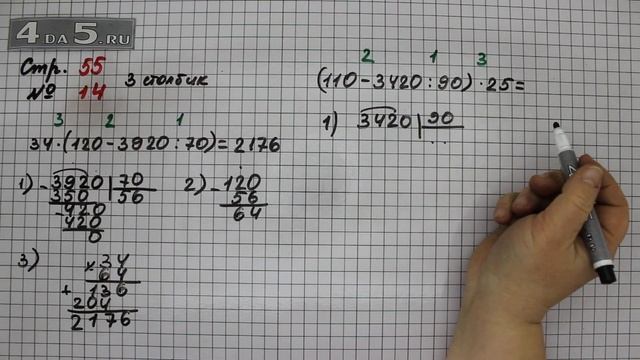 4 DA 5.RU
Стр. 55
№ 14
3 столбик
3 2 1
34·(120-3920:70)=2176
1) -3920 | 70
350 | 56
-420
420
0
2) -120
56
64
3) ×34
64
+136
204
2176
2 1 3
(110-3420:90)·25=
1) 3420 | 90
. .